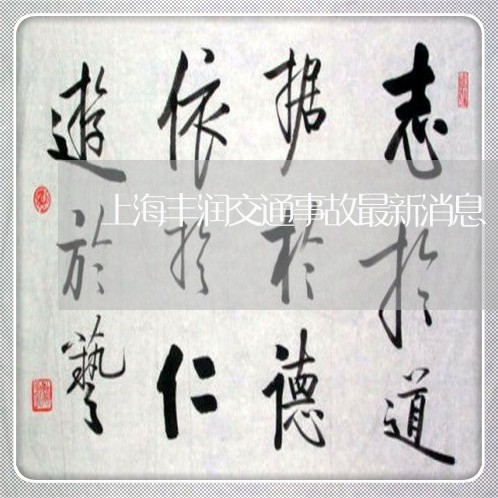 志於道
据於德
依於仁
遊於藝
上海丰润交通事故最新消息